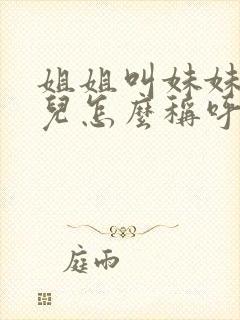 姐姐叫妹妹
兒怎麼稱呼
庭雨